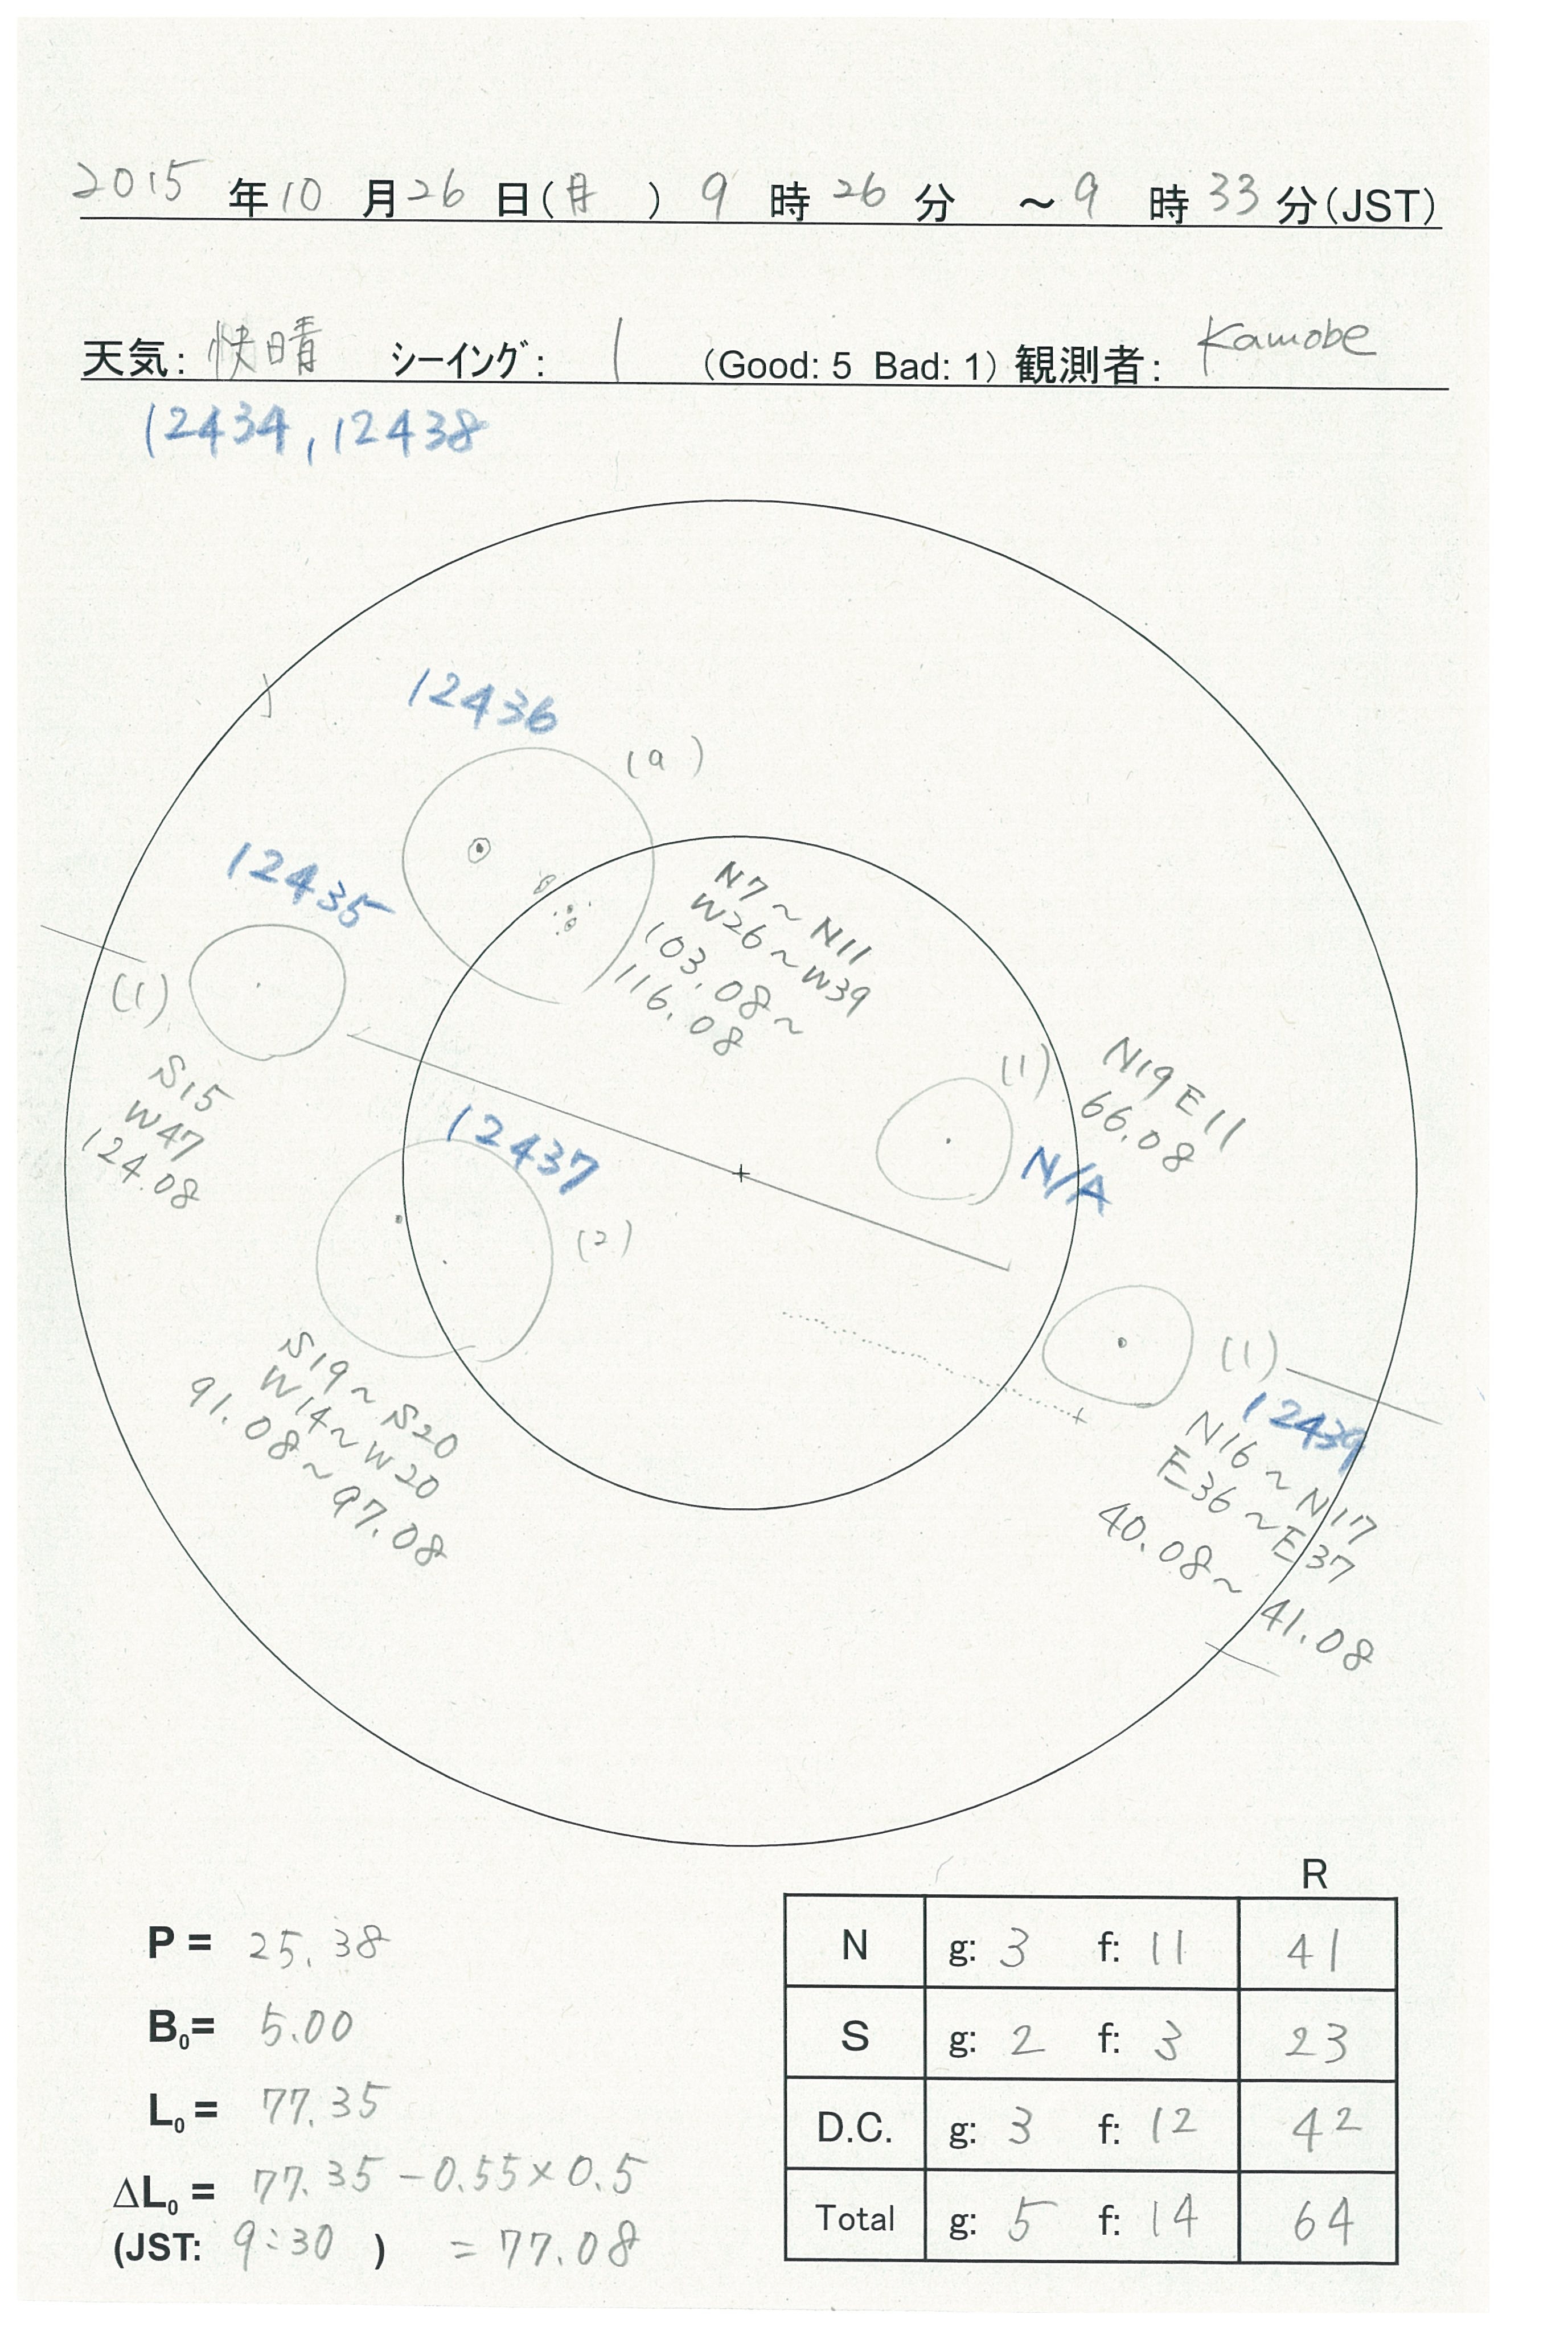 2015 年 10 月 26 日(月) 9 時 26 分 ～ 9 時 33 分(JST)
天気: 快晴 シーイング: 1 (Good: 5 Bad: 1) 観測者: Kamobe
12434, 12438
12436
(9)
12435
N7～N11
W26～W39
103.08～
116.08
(1)
S15
W47
124.08
(1)
N19 E11
66.08
N/A
12437
(2)
S19～S20
W14～W20
91.08～97.08
(1)
12439
N16～N17
E36～E37
40.08～41.08
R
P = 25.38
B₀= 5.00
L₀ = 77.35
ΔL₀ = 77.35 - 0.55 × 0.5
(JST: 9:30 ) = 77.08
N g: 3 f: 11 41
S g: 2 f: 3 23
D.C. g: 3 f: 12 42
Total g: 5 f: 14 64